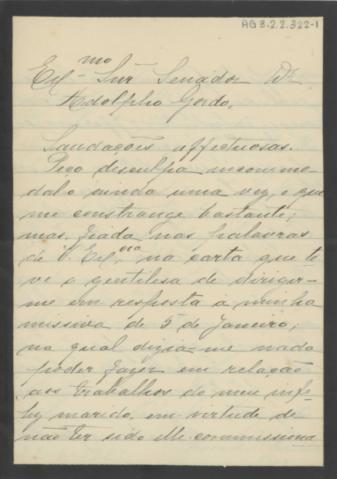 AG 3.2.2.322-1
Exl.mo Snr. Senador Dr.
Adolpho Gordo.
Saudações affectuosas.
Peço desculpa incommo-
dal-o ainda uma vez, o que
me constrange bastante;
mas, fiada nas palavras
de V. Excia. na carta que te-
ve a gentilesa de dirigir-
me em resposta á minha
missiva de 5 de Janeiro,
na qual dizia-me nada
poder fazer em relação
aos trabalhos do meu infe-
liz marido, em virtude de
não ter sido elle commissiona